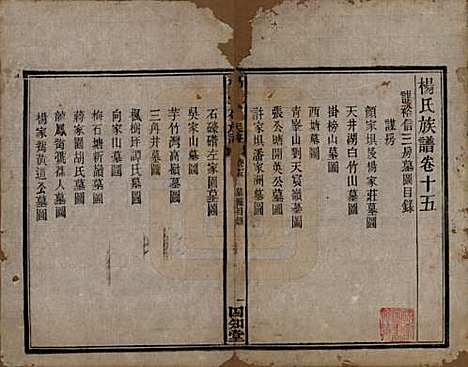 楊氏族譜卷十五
謹裕信三房墓圖目錄
謹房
顏家垻後楊家莊墓圖
天井湖白竹山墓圖
掛榜山墓圖
西塘墓圖
張公塘開英公墓圖
青峯山劉天寶嶺墓圖
許家垻潘家洲墓圖
族譜
目錄
一
四知堂
石磙磄左家園墓圖
吳家山墓圖
芋竹灣高嶺墓圖
三舟井墓圖
楓樹坪譚氏墓圖
向家山墓圖
梅石塘新嶺墓圖
蔣家園胡氏墓圖
鳳衖蔡人墓圖
楊家衖黃道公墓圖